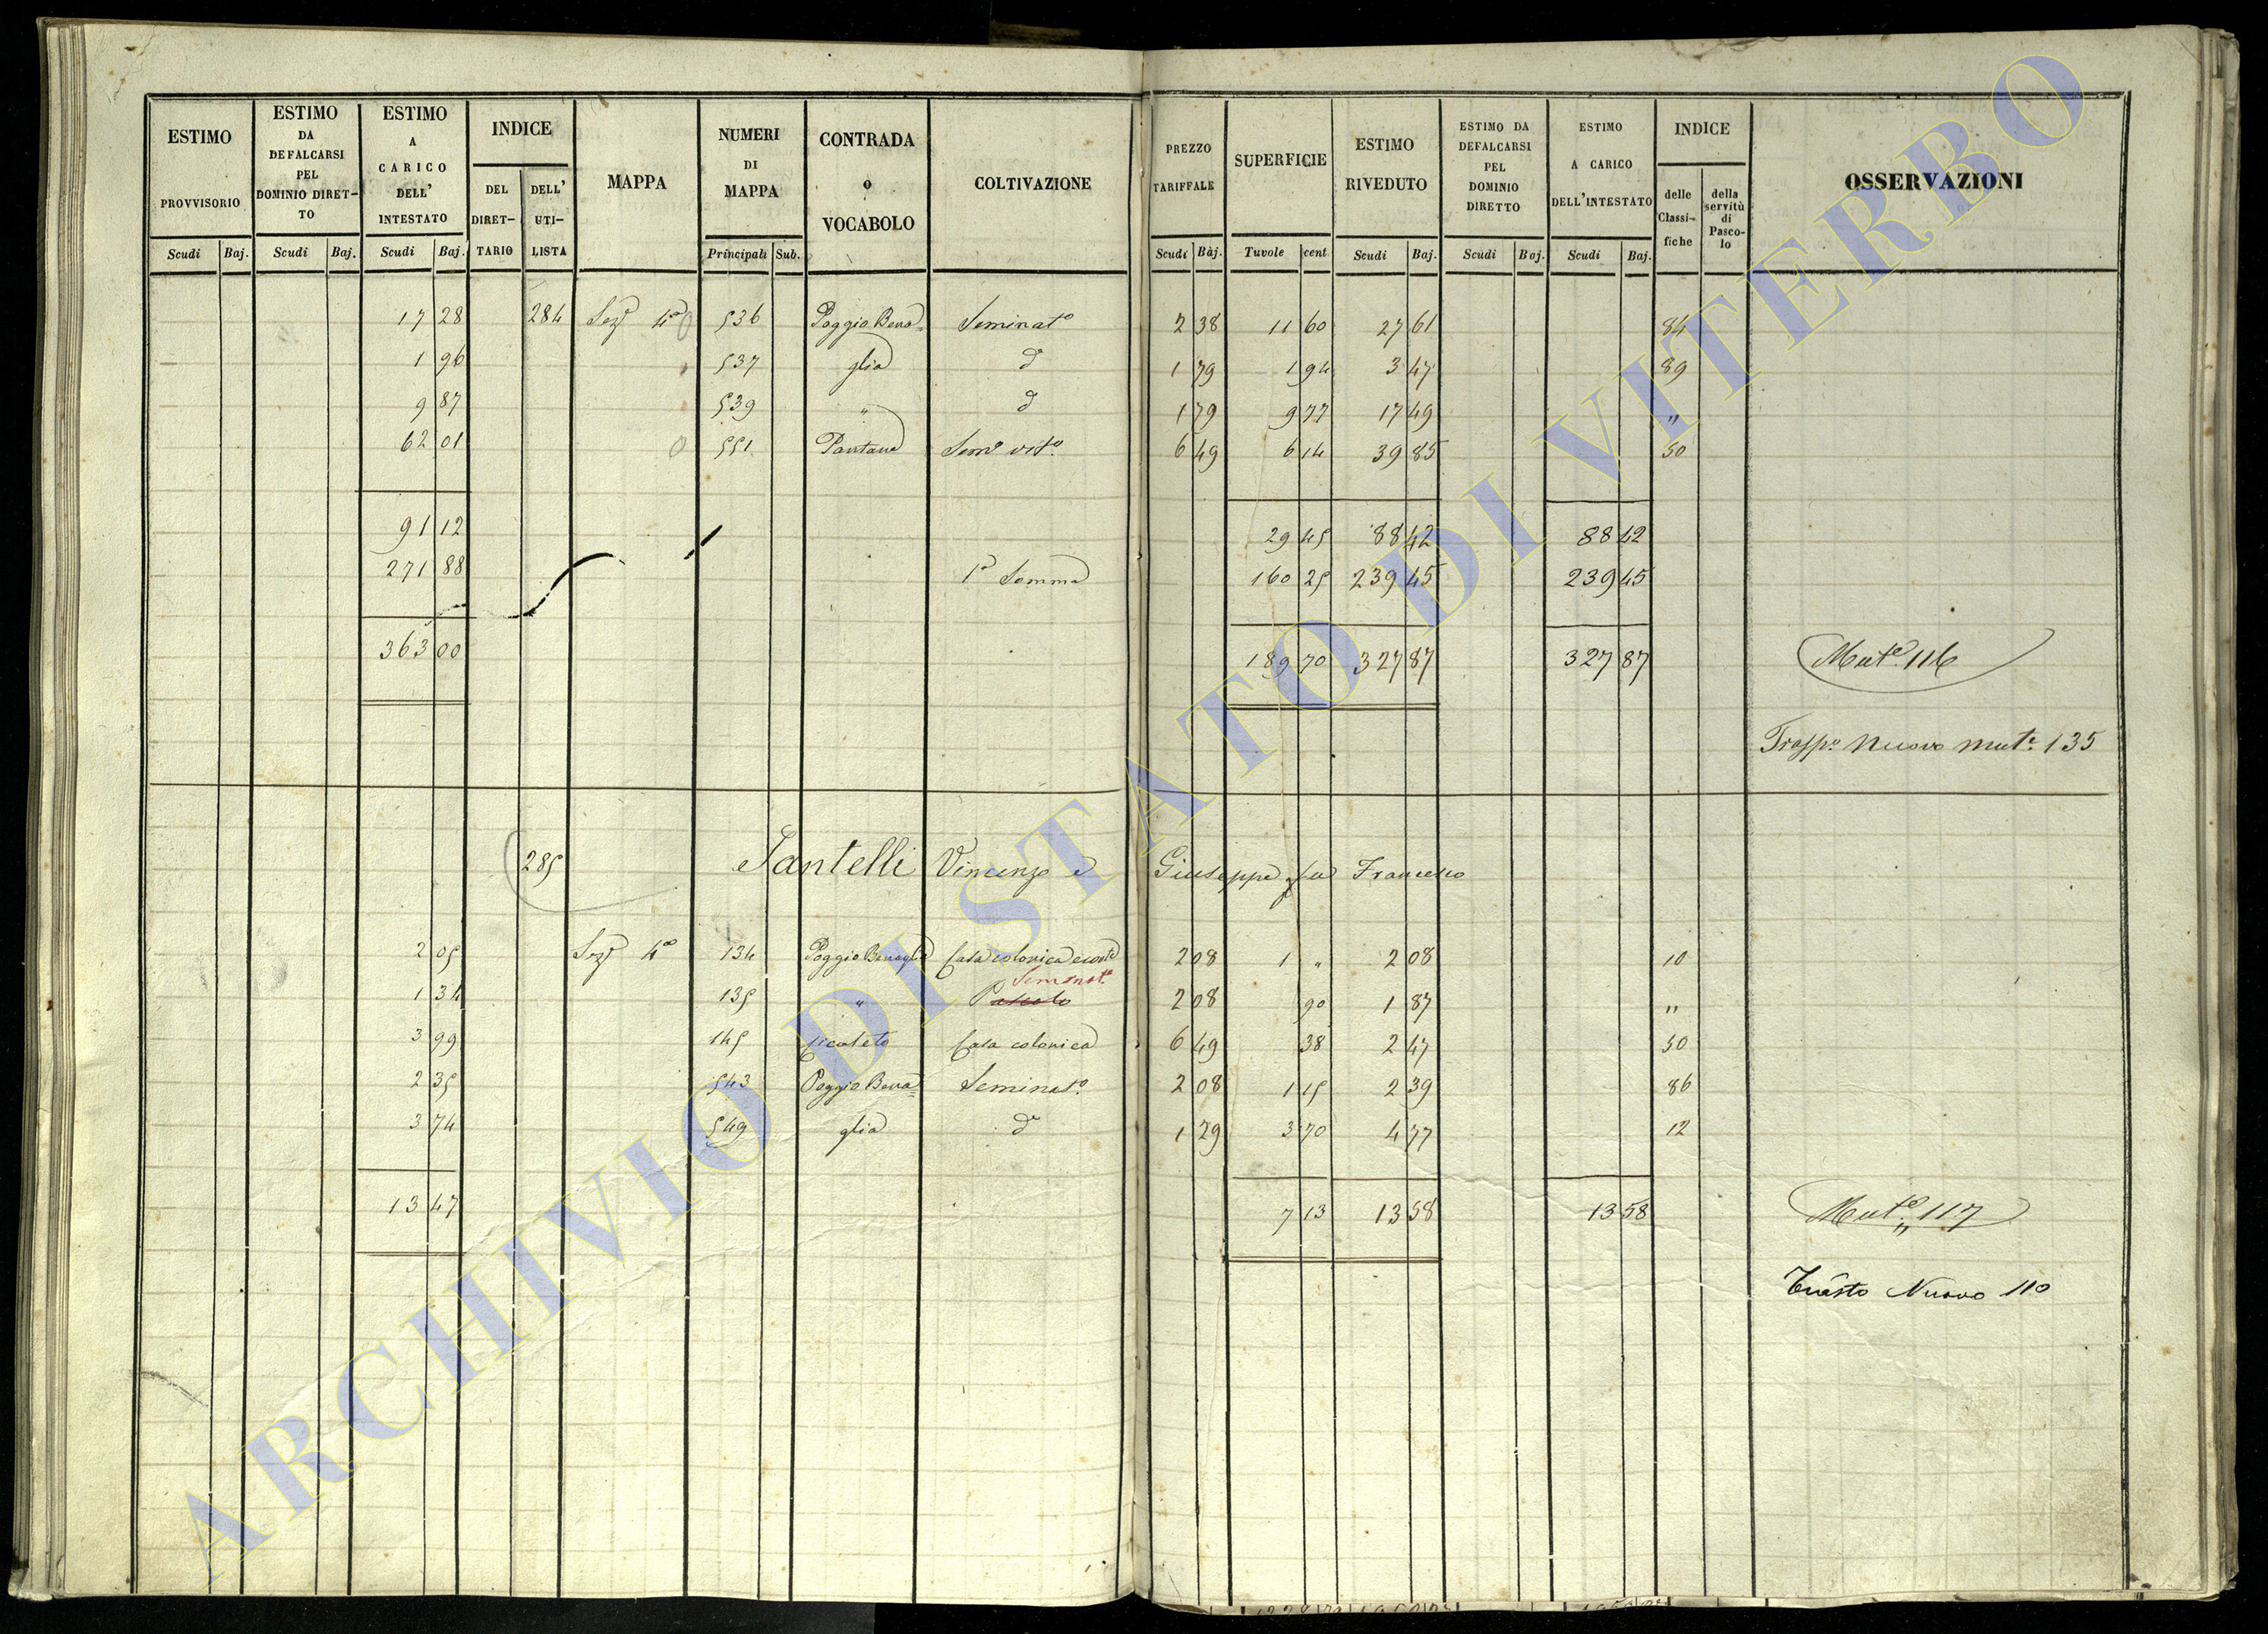 ESTIMO PROVVISORIO
ESTIMO DA DEFALCARSI PEL DOMINIO DIRET-TO
ESTIMO A CARICO DELL' INTESTATO
INDICE
DEL DIRET-TARIO
DELL' UTI-LISTA
MAPPA
NUMERI DI MAPPA
CONTRADA o VOCABOLO
COLTIVAZIONE
PREZZO TARIFFALE
SUPERFICIE
ESTIMO RIVEDUTO
ESTIMO DA DEFALCARSI PEL DOMINIO DIRETTO
ESTIMO A CARICO DELL'INTESTATO
INDICE
delle Classi-fiche
della servitù di Pasco-lo
OSSERVAZIONI
Scudi Baj. Scudi Baj. Scudi Baj. Principali Sub. Scudi Baj. Tuvole cent Scudi Baj. Scudi Baj. Scudi Baj.
17 28 284 Seze 4a 536 Poggio Bena= Seminato 2 38 11 60 27 61 84
1 96 537 glia do 1 79 1 94 3 47 89
9 87 539 " do 1 79 9 77 17 49 "
62 01 551 Pantane Semo vito. 6 49 6 14 39 85 50
91 12 29 45 88 42 88 42
271 88 1a Somma 160 25 239 45 239 45
363 00 189 70 327 87 327 87 Mute. 116
Trasspo nuovo mute. 135
285 Santelli Vincenzo e Giuseppe fu Francesco
2 05 Seze 4a 134 Poggio Benaglia Casa colonica e corte 2 08 1 " 2 08 10
Seminato
1 34 135 " Pascolo 2 08 90 1 87 "
3 99 145 Casa colonica 6 49 38 2 47 50
2 35 543 Poggio Bena= Seminato. 2 08 1 15 2 39 86
3 74 549 glia do 1 29 3 70 4 77 12
13 47 7 13 13 58 13 58 Mute. 117
"
Nuovo 110
ARCHIVIO DI STATO DI VITERBO